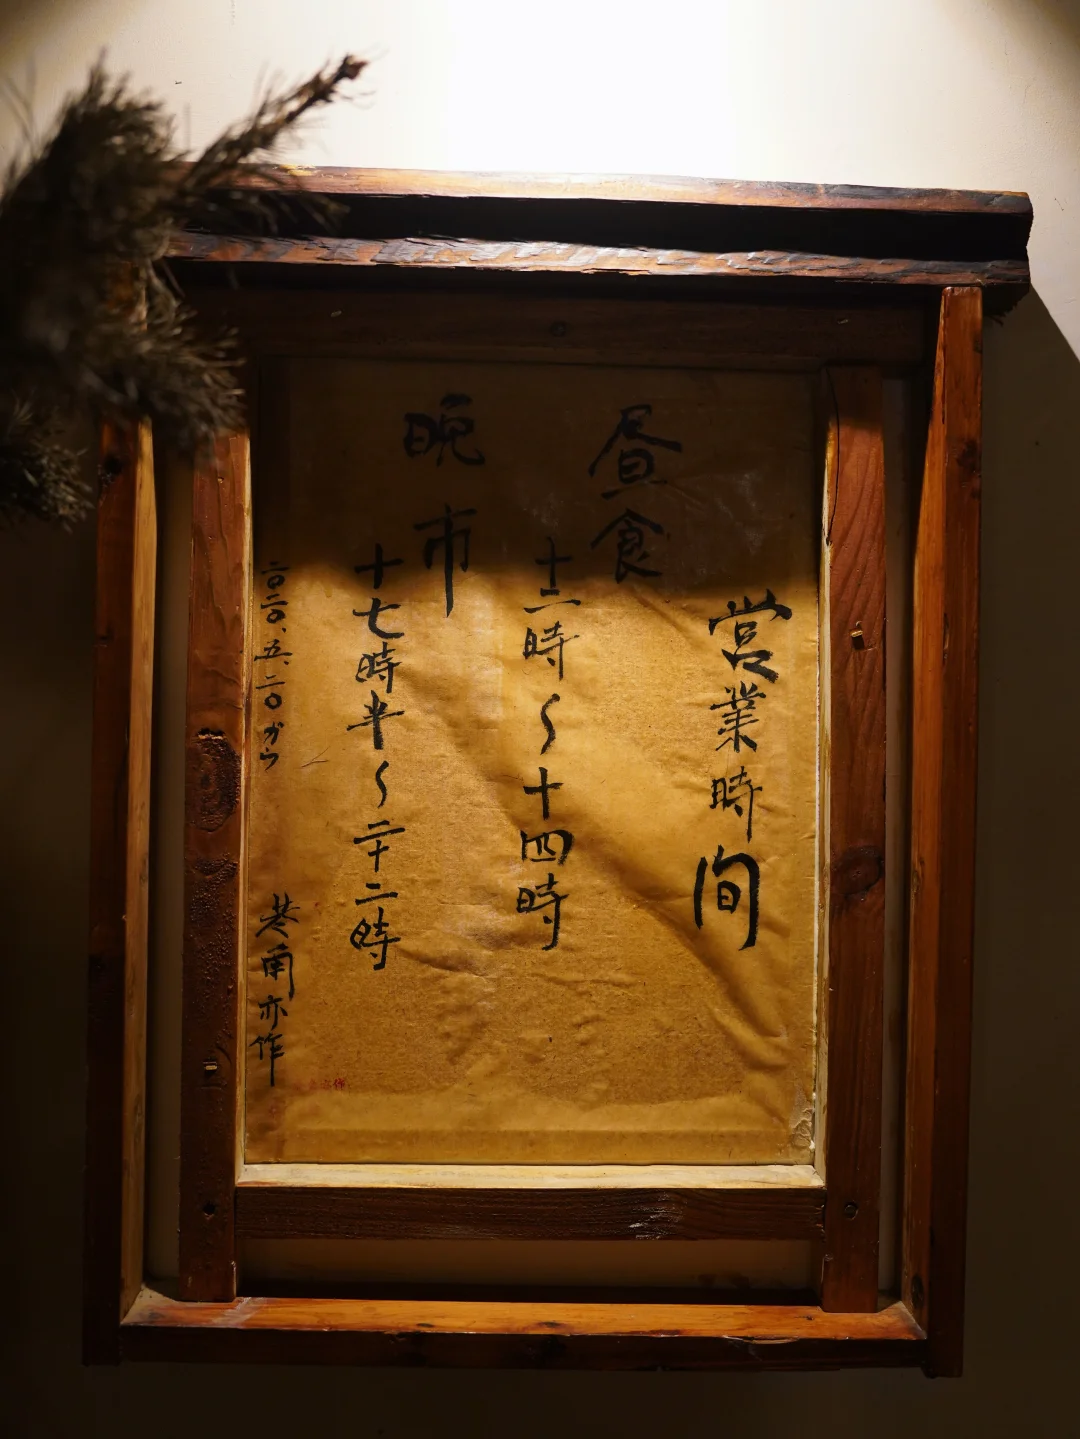 営業時間
昼食
十二時〜十四時
晩市
十七時半〜二十二時
二〇二〇、五、二〇から
巷南亦作